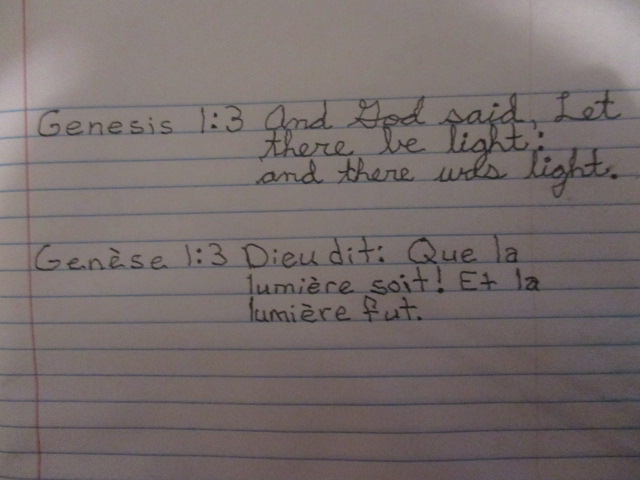 Genesis 1:3 And God said, Let
there be light:
and there was light.
Genèse 1:3 Dieu dit: Que la
lumière soit! Et la
lumière fut.